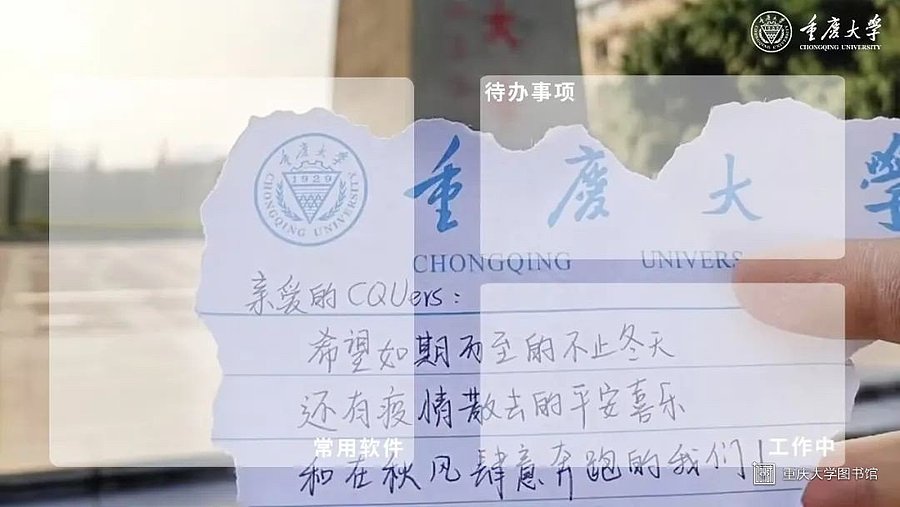 重庆大学
CHONGQING UNIVERSITY
待办事项
重庆大学
1929
CHONGQING UNIVERSITY
重庆大学
CHONGQING UNIVERS
亲爱的CQUers:
希望如期而至的不止冬天
还有疫情散去的平安喜乐
和在秋风肆意奔跑的我们!
常用软件
工作中
重庆大学图书馆